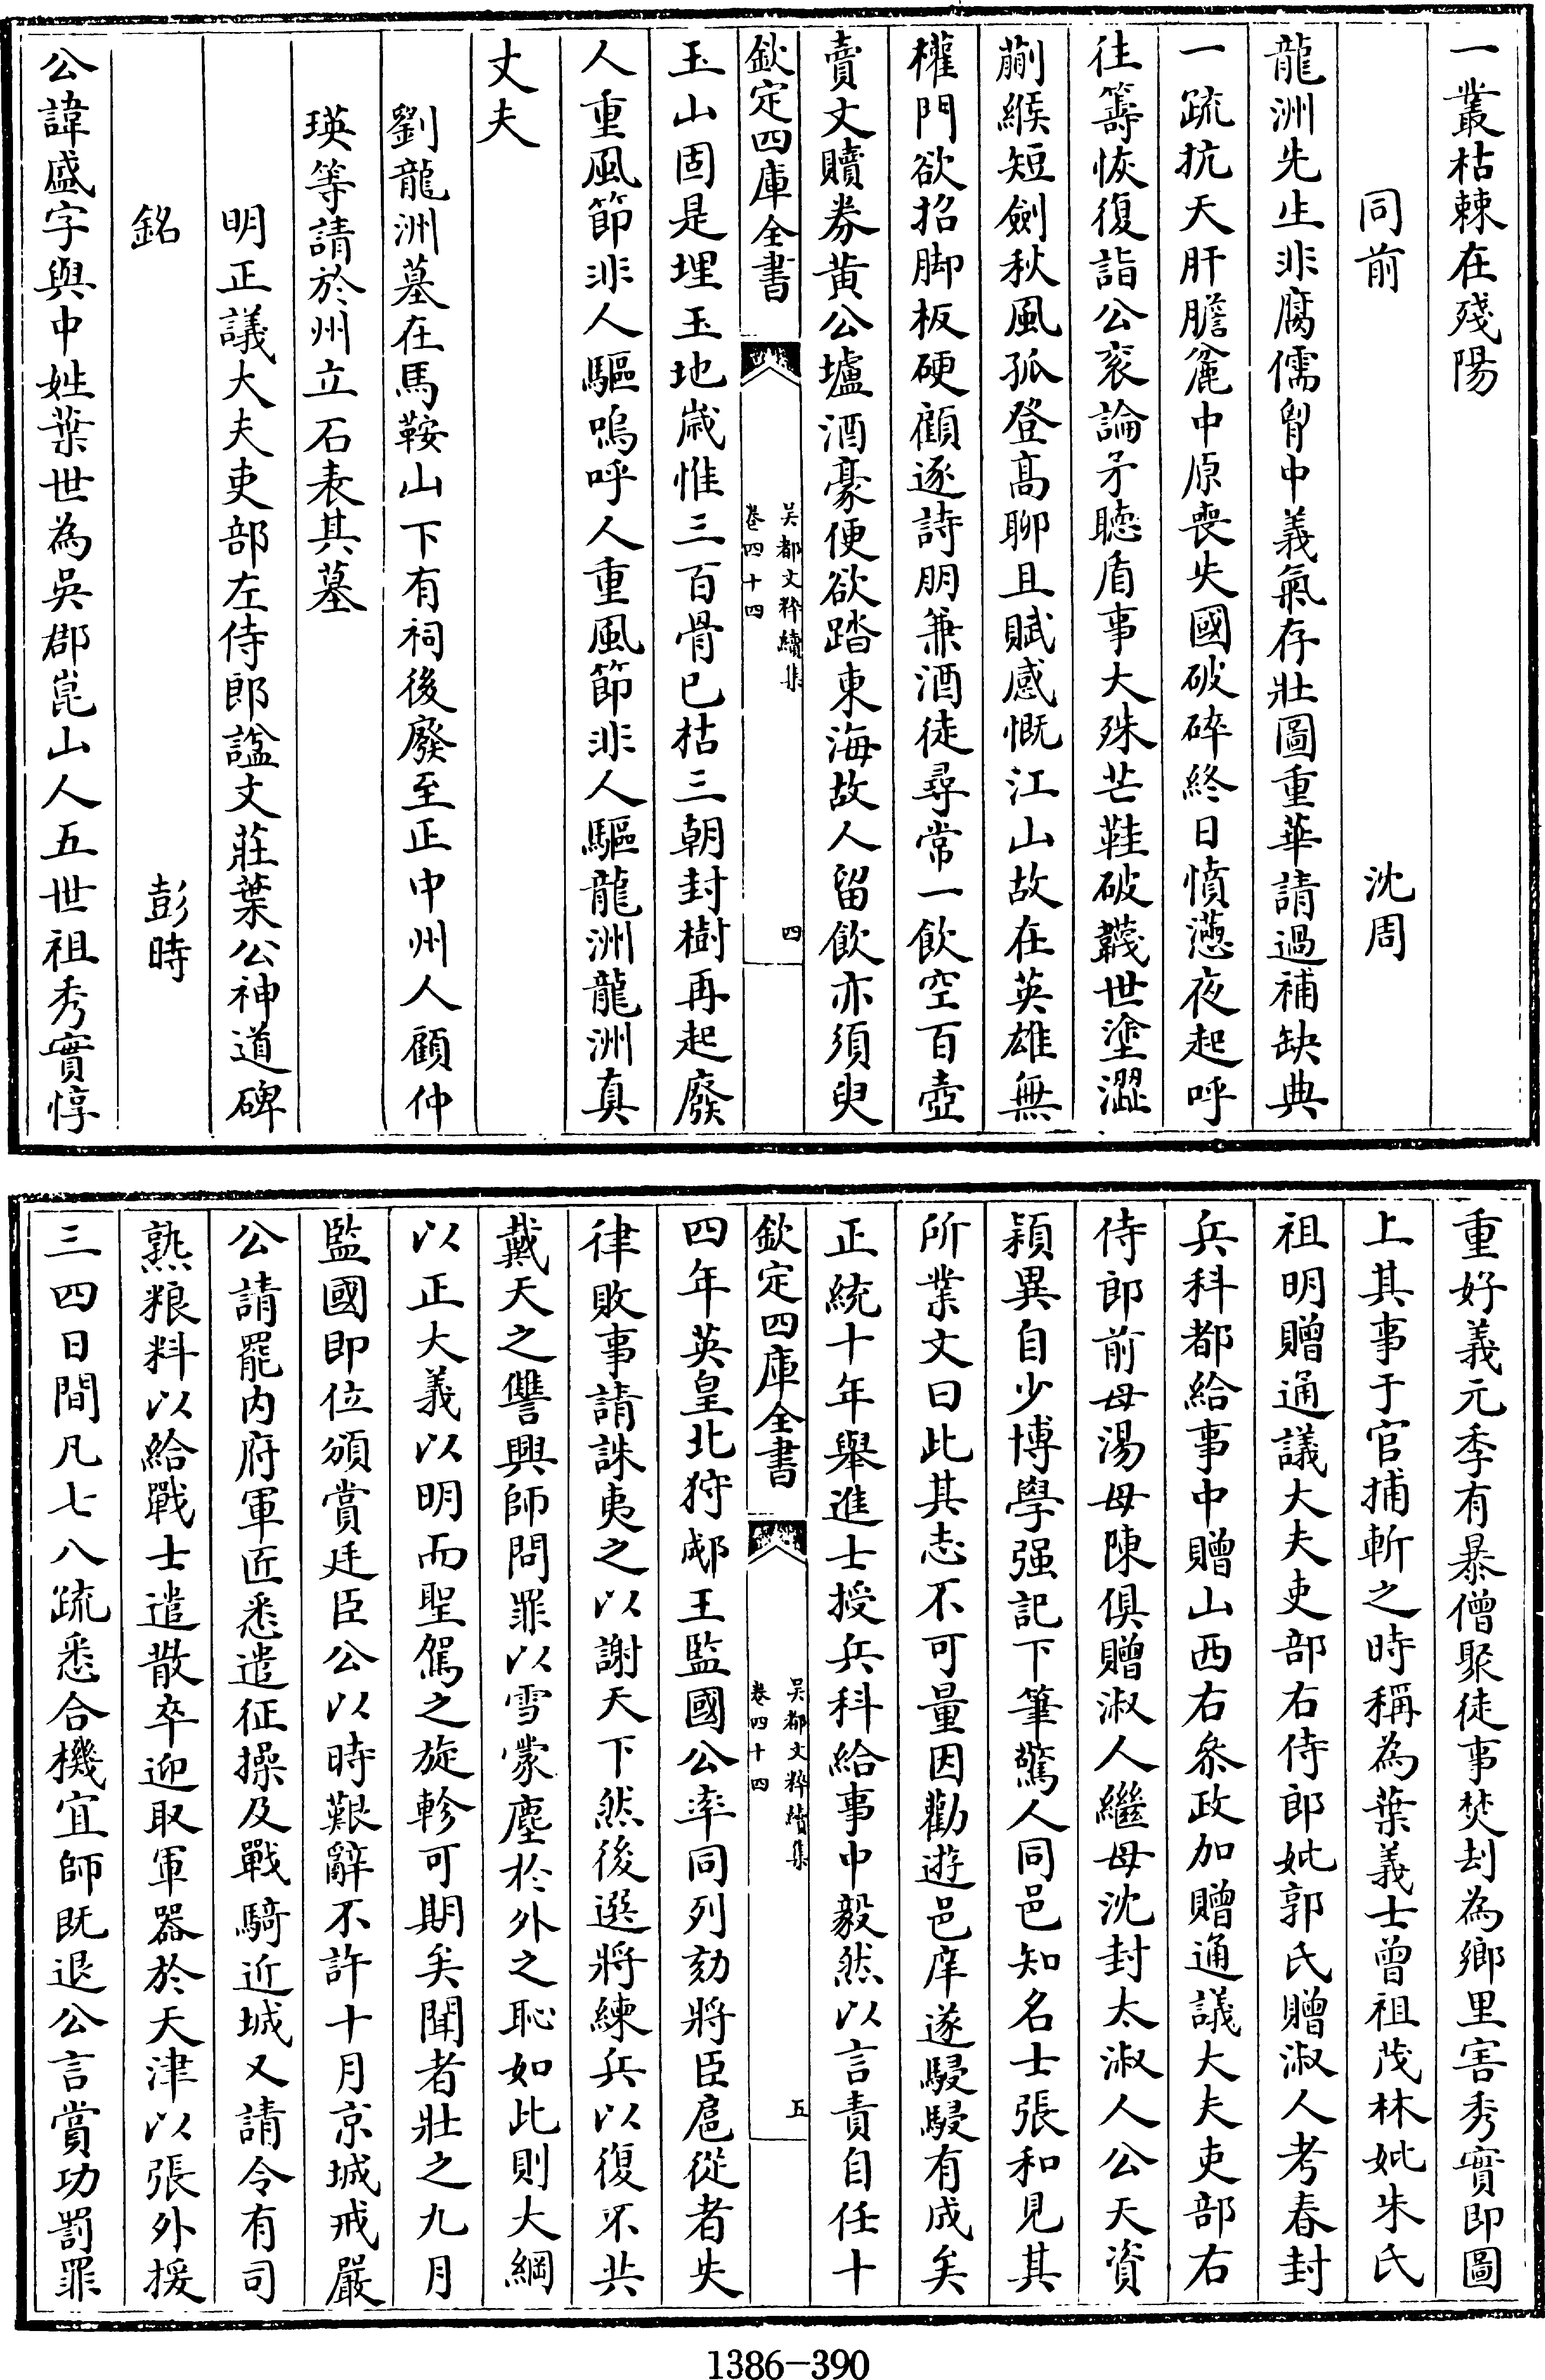 一叢枯棘在殘陽
同前 沈周
龍洲先生非腐儒胷中義氣存壯圖重華請過補缺典
一疏抗天肝膽麄中原喪失國破碎終日憤懣夜起呼
往籌恢復詣公衮論矛聴盾事大殊芒鞋破韈世塗澀
蒯緱短劍秋風孤登高聊且賦感慨江山故在英雄無
權門欲招脚板硬顧逐詩朋兼酒徒尋常一飲空百壺
賣文贖券黄公壚酒豪便欲踏東海故人留飲亦須臾
欽定四庫全書
吴都文粹續集
卷四十四
四
玉山固是埋玉地歲惟三百骨已枯三朝封樹再起廢
人重風節非人驅嗚呼人重風節非人驅龍洲龍洲真
丈夫
劉龍洲墓在馬鞍山下有祠後廢至正中州人顧仲
瑛等請於州立石表其墓
明正議大夫吏部左侍郎諡文莊葉公神道碑
銘 彭時
公諱盛字與中姓葉世為吳郡崑山人五世祖秀實惇
重好義元季有暴僧聚徒事焚刦為鄉里害秀實即圖
上其事于官捕斬之時稱為葉義士曾祖茂林妣朱氏
祖明贈通議大夫吏部右侍郎妣郭氏贈淑人考春封
兵科都給事中贈山西右叅政加贈通議大夫吏部右
侍郎前母湯母陳俱贈淑人繼母沈封太淑人公天資
穎異自少博學强記下筆驚人同邑知名士張和見其
所業文曰此其志不可量因勸遊邑庠遂駸駸有成矣
正統十年舉進士授兵科給事中毅然以言責自任十
欽定四庫全書
吴都文粹續集
卷四十四
五
四年英皇北狩郕王監國公率同列劾將臣扈從者失
律敗事請誅夷之以謝天下然後選將練兵以復不共
戴天之讐興師問罪以雪蒙塵於外之恥如此則大綱
以正大義以明而聖駕之旋軫可期矣聞者壯之九月
監國即位頒賞廷臣公以時艱辭不許十月京城戒嚴
公請罷内府軍匠悉遣征操及戰騎近城又請令有司
熟粮料以給戰士遣散卒迎取軍器於天津以張外援
三四日間凡七八疏悉合機宜師既退公言賞功罰罪
1386-390